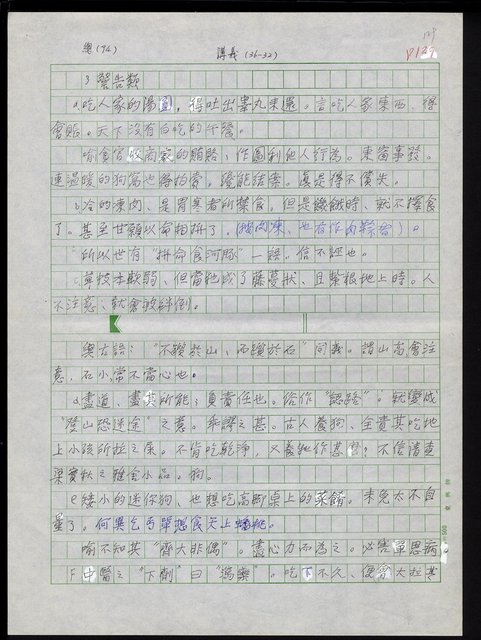 總(74)
講義(36-32)
P129
3 警告類
a吃人家的湯圓,得吐出睪丸來還。言吃人家東西,得
會賠。天下沒有白吃的午餐。
喻貪官收商家的賄賂、作圖利他人行為。東窗事發。
連溫暖的狗窩也得拍賣,才能結案。真是得不償失。
b冷的凍肉、是胃寒者所禁食,但是饑餓時、就不擇食
了。甚至甘願以命相拼了,(豬肉凍、也有作肉粽者)。
所以世有"拼命食河豚"一語。信不誣也。
c草枝本軟弱、但當牠成了藤蔓狀、且繫根地上時。人
不注意,就會被絆倒。
與古語:"不躓於山,而躓於石"同義。謂山高會注
意,石小常不當心也。
d盡道、盡其所能;負責任也。俗作"認路"。就變成
"登山恐迷途"之意。乖謬之甚。古人養狗、全責其吃地
上小孩所拉之屎。不肯吃乾淨,又養牠作甚?不信請查
梁實秋之雅舍小品。狗。
e矮小的迷你狗、也想吃高腳桌上的菜餚。未免太不自
量了。何異乞丐單想食天上蟠桃。
喻不知其"齊大非偶"。盡心力而為之。必害單思病
F中醫之"下劑"曰"瀉藥"。吃下不久、便會大拉其